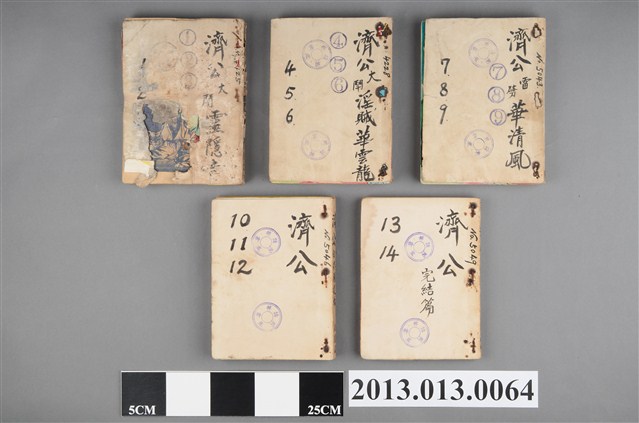 濟公大鬧靈隱寺
①
1
2
濟公大鬧淫賊華雲龍
④
⑤
⑥
4
5.
6
濟公雷劈華清風
⑦
⑧
⑨
7.
8
9.
濟公
10
11
12
濟公
13
14
完结篇
5CM
25CM
2013.013.0064